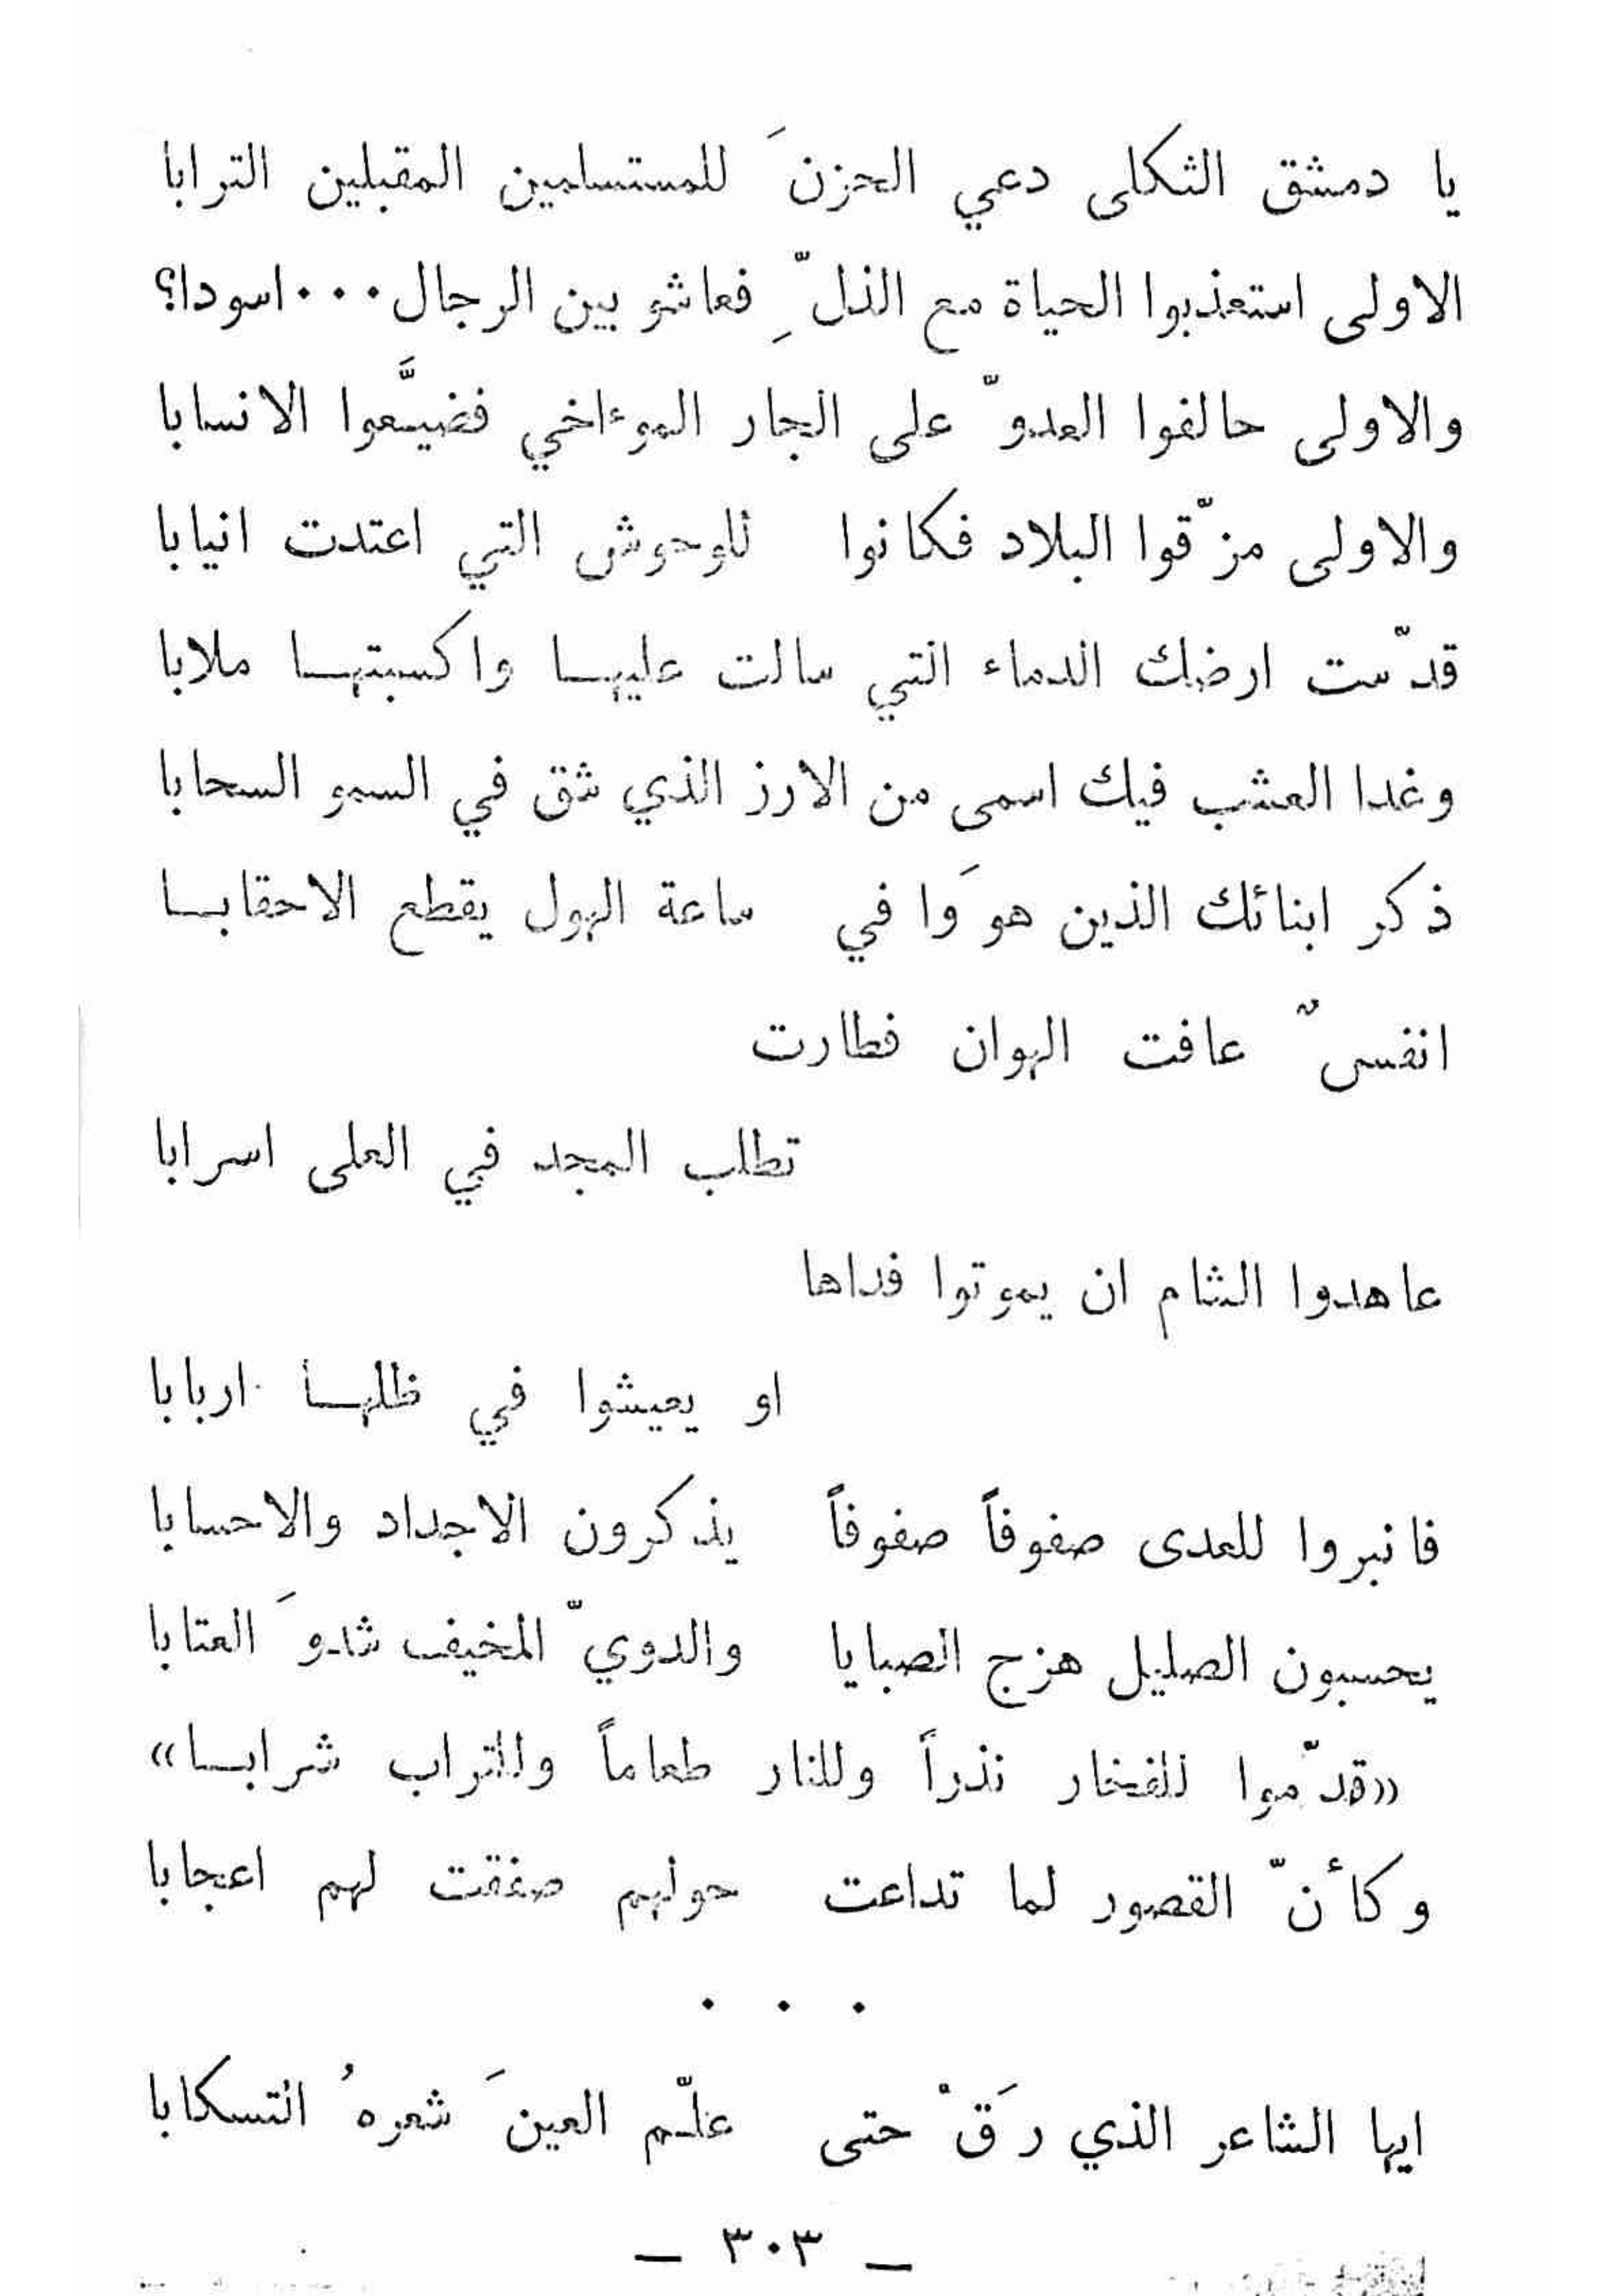 يا دمشق الثكلى دعي الحزنَ للمستسلمين المقبلين الترابا
الاولى استعذبوا الحياة مع الذلِّ فعاشو بين الرجال...اسودا؟
والاولى حالفوا العدوّ على الجار الموءاخي فضيَّعوا الانسابا
والاولى مزّقوا البلاد فكانوا للوحوش التي اعتدت انيابا
قدّست ارضك الدماء التي سالت عليهـــا واكسبتهـــا ملابا
وغدا العشب فيك اسمى من الارز الذي شق في السمو السحابا
ذكر ابنائك الذين هوَوا في ساعة الهول يقطع الاحقابـــا
انفسٌ عافت الهوان فطارت
تطلب المجد في العلى اسرابا
عاهدوا الشام ان يموتوا فداها
او يعيشوا في ظلهـــا اربابا
فانبروا للعدى صفوفاً صفوفاً يذكرون الاجداد والاحسابا
يحسبون الصليل هزج الصبايا والدويّ المخيف شدوَ العتابا
«قدّموا للفخار نذراً وللنار طعاماً وللتراب شرابـــا»
وكأنّ القصور لما تداعت حولهم صفقت لهم اعجابا
. . .
ايها الشاعر الذي رَقْ حتى علّـم العينَ شعرهُ التسكابا
— ٣٠٣ —